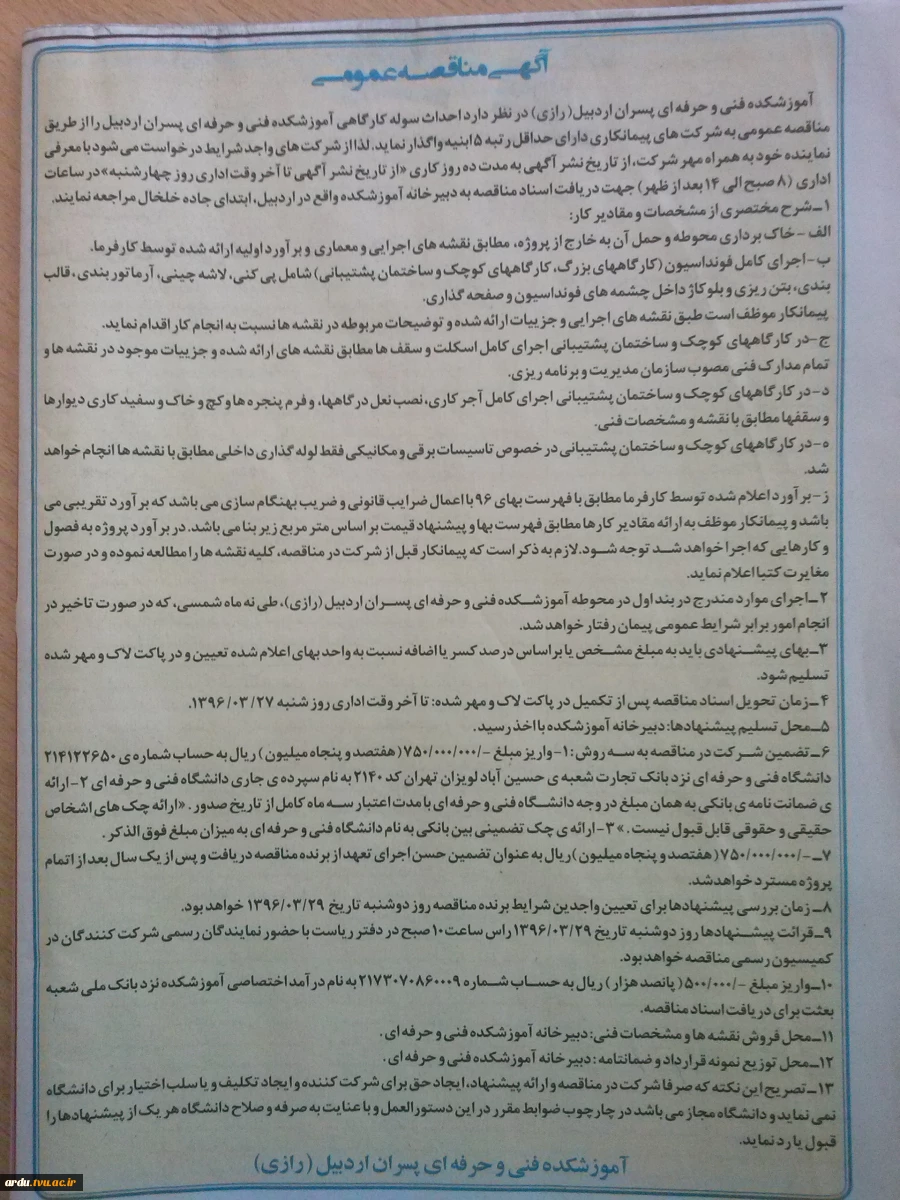 آگهی مناقصه عمومی
آموزشکده فنی و حرفه ای پسران اردبیل (رازی) در نظر دارد احداث سوله کارگاهی آموزشکده فنی و حرفه ای پسران اردبیل را از طریق
مناقصه عمومی به شرکت های پیمانکاری دارای حداقل رتبه ۵ ابنیه واگذار نماید. لذا از شرکت های واجد شرایط درخواست می شود با معرفی
نماینده خود به همراه مهر شرکت، از تاریخ نشر آگهی به مدت ده روز کاری «از تاریخ نشر آگهی تا آخر وقت اداری روز چهارشنبه» در ساعات
اداری (۸ صبح الی ۱۴ بعد از ظهر) جهت دریافت اسناد مناقصه به دبیرخانه آموزشکده واقع در اردبیل، ابتدای جاده خلخال مراجعه نمایند.
۱ــ شرح مختصری از مشخصات و مقادیر کار:
الف - خاک برداری محوطه و حمل آن به خارج از پروژه، مطابق نقشه های اجرایی و معماری و برآورد اولیه ارائه شده توسط کارفرما.
ب-اجرای کامل فونداسیون (کارگاههای بزرگ، کارگاههای کوچک و ساختمان پشتیبانی) شامل پی کنی، لاشه چینی، آرماتور بندی، قالب
بندی، بتن ریزی و بلوکاژ داخل چشمه های فونداسیون و صفحه گذاری.
پیمانکار موظف است طبق نقشه های اجرایی و جزییات ارائه شده و توضیحات مربوطه در نقشه ها نسبت به انجام کار اقدام نماید.
ج-در کارگاههای کوچک و ساختمان پشتیبانی اجرای کامل اسکلت و سقف ها مطابق نقشه های ارائه شده و جزییات موجود در نقشه ها و
تمام مدارک فنی مصوب سازمان مدیریت و برنامه ریزی.
د-در کارگاههای کوچک و ساختمان پشتیبانی اجرای کامل آجر کاری، نصب نعل درگاهها، و فرم پنجره ها و کچ و خاک و سفید کاری دیوارها
و سقفها مطابق با نقشه و مشخصات فنی.
ه-در کارگاههای کوچک و ساختمان پشتیبانی در خصوص تاسیسات برقی و مکانیکی فقط لوله گذاری داخلی مطابق با نقشه ها انجام خواهد
شد.
ز-برآورد اعلام شده توسط کارفرما مطابق با فهرست بهای ۹۶ با اعمال ضرایب قانونی و ضریب بهنگام سازی می باشد که برآورد تقریبی می
باشد و پیمانکار موظف به ارائه مقادیر کارها مطابق فهرست بها و پیشنهاد قیمت بر اساس متر مربع زیر بنا می باشد. در برآورد پروژه به فصول
و کارهایی که اجرا خواهد شد توجه شود. لازم به ذکر است که پیمانکار قبل از شرکت در مناقصه، کلیه نقشه ها را مطالعه نموده و در صورت
مغایرت کتبا اعلام نماید.
۲ــ اجرای موارد مندرج در بند اول در محوطه آموزشکده فنی و حرفه ای پسران اردبیل (رازی)، طی نه ماه شمسی، که در صورت تاخیر در
انجام امور برابر شرایط عمومی پیمان رفتار خواهد شد.
۳ــ بهای پیشنهادی باید به مبلغ مشخص یا بر اساس درصد کسر یا اضافه نسبت به واحد بهای اعلام شده تعیین و در پاکت لاک و مهر شده
تسلیم شود.
۴ــ زمان تحویل اسناد مناقصه پس از تکمیل در پاکت لاک و مهر شده: تا آخر وقت اداری روز شنبه ۱۳۹۶/۰۳/۲۷.
۵ــ محل تسلیم پیشنهادها: دبیرخانه آموزشکده با اخذ رسید.
۶ــ تضمین شرکت در مناقصه به سه روش: ۱- واریز مبلغ -/۷۵۰/۰۰۰/۰۰۰ (هفتصد و پنجاه میلیون) ریال به حساب شماره ی ۲۱۴۱۲۲۶۵۰
دانشگاه فنی و حرفه ای نزد بانک تجارت شعبه ی حسین آباد لویزان تهران کد ۲۱۴۰ به نام سپرده ی جاری دانشگاه فنی و حرفه ای ۲- ارائه
ی ضمانت نامه ی بانکی به همان مبلغ در وجه دانشگاه فنی و حرفه ای با مدت اعتبار سه ماه کامل از تاریخ صدور. «ارائه چک های اشخاص
حقیقی و حقوقی قابل قبول نیست.» ۳- ارائه ی چک تضمینی بین بانکی به نام دانشگاه فنی و حرفه ای به میزان مبلغ فوق الذکر.
۷ــ -/۷۵۰/۰۰۰/۰۰۰ (هفتصد و پنجاه میلیون) ریال به عنوان تضمین حسن اجرای تعهد از برنده مناقصه دریافت و پس از یک سال بعد از اتمام
پروژه مسترد خواهد شد.
۸ــ زمان بررسی پیشنهادها برای تعیین واجدین شرایط برنده مناقصه روز دوشنبه تاریخ ۱۳۹۶/۰۳/۲۹ خواهد بود.
۹ــ قرائت پیشنهادها روز دوشنبه تاریخ ۱۳۹۶/۰۳/۲۹ راس ساعت ۱۰ صبح در دفتر ریاست با حضور نمایندگان رسمی شرکت کنندگان در
کمیسیون رسمی مناقصه خواهد بود.
۱۰ــ واریز مبلغ -/۵۰۰/۰۰۰ (پانصد هزار) ریال به حساب شماره ۲۱۷۳۰۷۰۸۶۰۰۰۹ به نام درآمد اختصاصی آموزشکده نزد بانک ملی شعبه
بعثت برای دریافت اسناد مناقصه.
۱۱ــ محل فروش نقشه ها و مشخصات فنی: دبیرخانه آموزشکده فنی و حرفه ای.
۱۲ــ محل توزیع نمونه قرارداد و ضمانتامه: دبیرخانه آموزشکده فنی و حرفه ای.
۱۳ــ تصریح این نکته که صرفا شرکت در مناقصه و ارائه پیشنهاد، ایجاد حق برای شرکت کننده و ایجاد تکلیف و یا سلب اختیار برای دانشگاه
نمی نماید و دانشگاه مجاز می باشد در چارچوب ضوابط مقرر در این دستورالعمل و با عنایت به صرفه و صلاح دانشگاه هر یک از پیشنهادها را
قبول یا رد نماید.
آموزشکده فنی و حرفه ای پسران اردبیل (رازی)
ardu.tvu.ac.ir